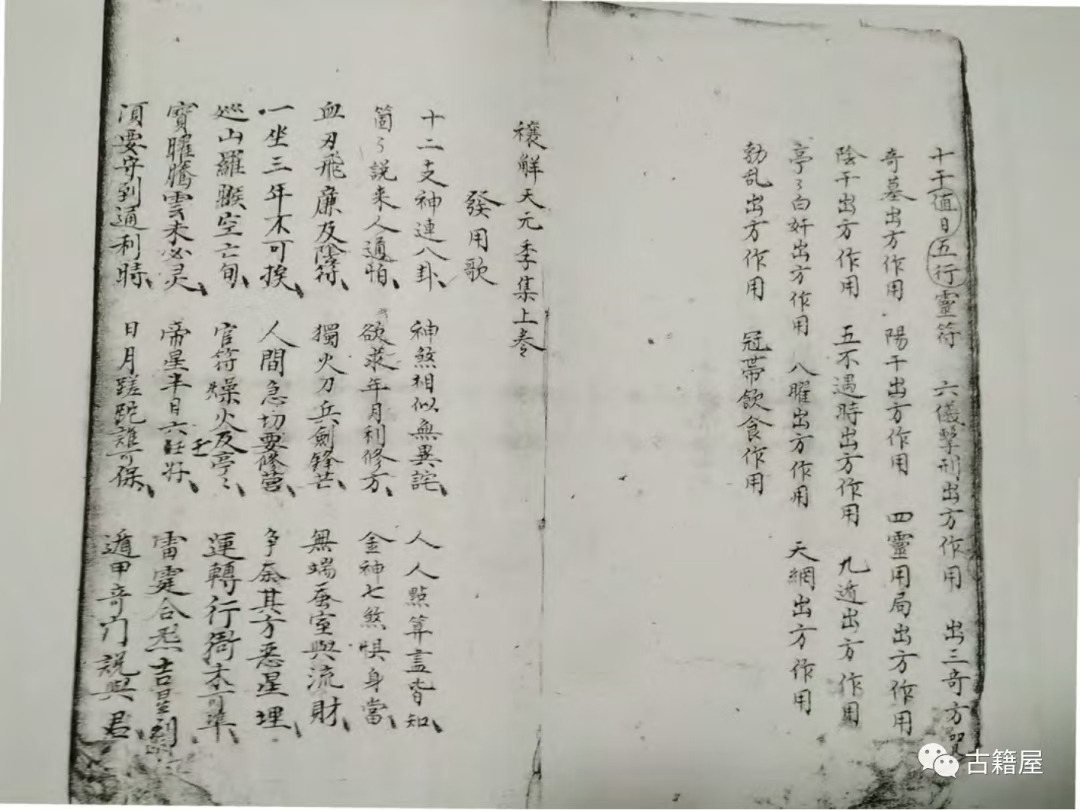 十干值日五行靈符　六儀擊刑出方作用　出三奇方
奇墓出方作用　陽干出方作用　四靈用局出方作用
陰干出方作用　五不遇時出方作用　九遁出方作用
亭〻白奸出方作用　八曜出方作用　天網出方作用
勃乱出方作用　冠帯飲食作用
禳解天元季集上卷
發用歌
十二支神連八卦、　神煞相似無異詫、　人人㸃算盖皆知、
箇〻說來人通怕、　欲求年月利修方、　金神七煞惧身當、
血刃飛廉及陰符、　獨火刀兵劍鋒芒、　無端蚕室與流財、
一坐三年不可挨、　人間急切要修营、　争奈其方惡星埋、
巡山羅睺空亡旬、　官符燥火及亭〻、　運轉行衙未可準、
寳曜騰雲未必灵、　帝星半日六壬好、　雷霆合炁吉星到、
須要守到通利時、　日月蹉跎難可保、　遁甲竒门說與君、
古籍屋